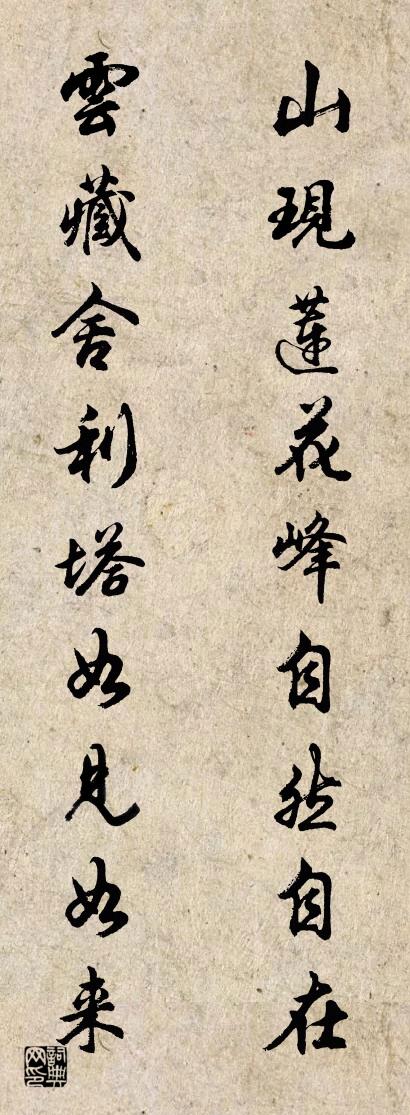 山現蓮花峰自然自在
雲藏舍利塔如見如来
詞典網印